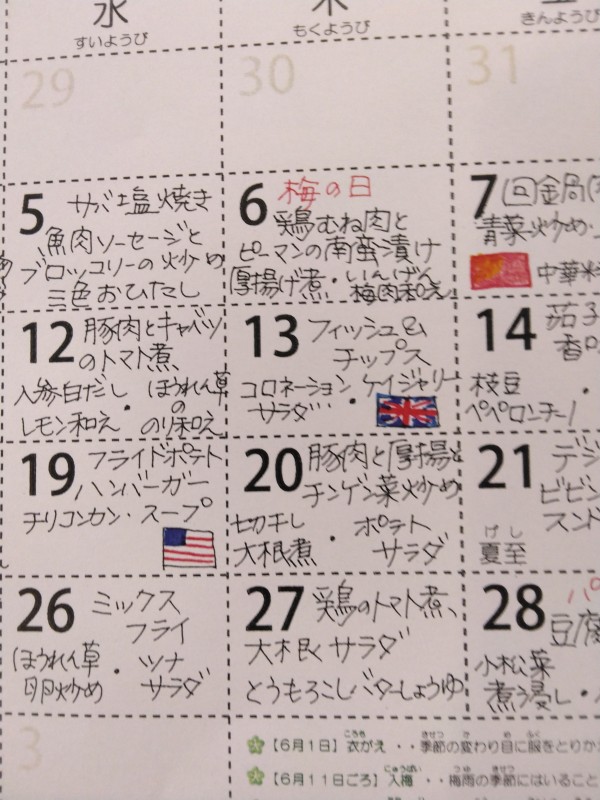 水
すいようび
木
もくようび
きんようび
29
30
31
5
サバ塩焼き
魚肉ソーセージと
ブロッコリーの炒め
三色おひたし
6
梅の日
鶏むね肉と
ピーマンの南蛮漬け
厚揚げ煮・いんげん
梅肉和え
7
回金局
青菜炒め
中華料
12
豚肉とキャベツ
のトマト煮、
人参白だし ・ ほうれん草
レモン和え の
のり和え
13
フィッシュ&
チップス
コロネーション ケイジャリー
サラダ ・
14
茄子
香口
枝豆 ・
ペペロンチーノ
19
フライドポテト
ハンバーガー
チリコンカン・スープ
20
豚肉と厚揚と
チンゲン菜炒め
切干し ・ ポテト
大根煮 サラダ
21
デジ
ビビン
スンド
げし
夏至
26
ミックス
フライ
ほうれん草 ・ ツナ
卵炒め サラダ
27
鶏のトマト煮、
大根サラダ
とうもろこしバターしょうゆ
28
パ
豆腐
小松菜
煮浸し・
3
【6月1日】衣がえ・・季節の変わり目に服をとりか
【6月11日ごろ】入梅・・梅雨の季節にはいること